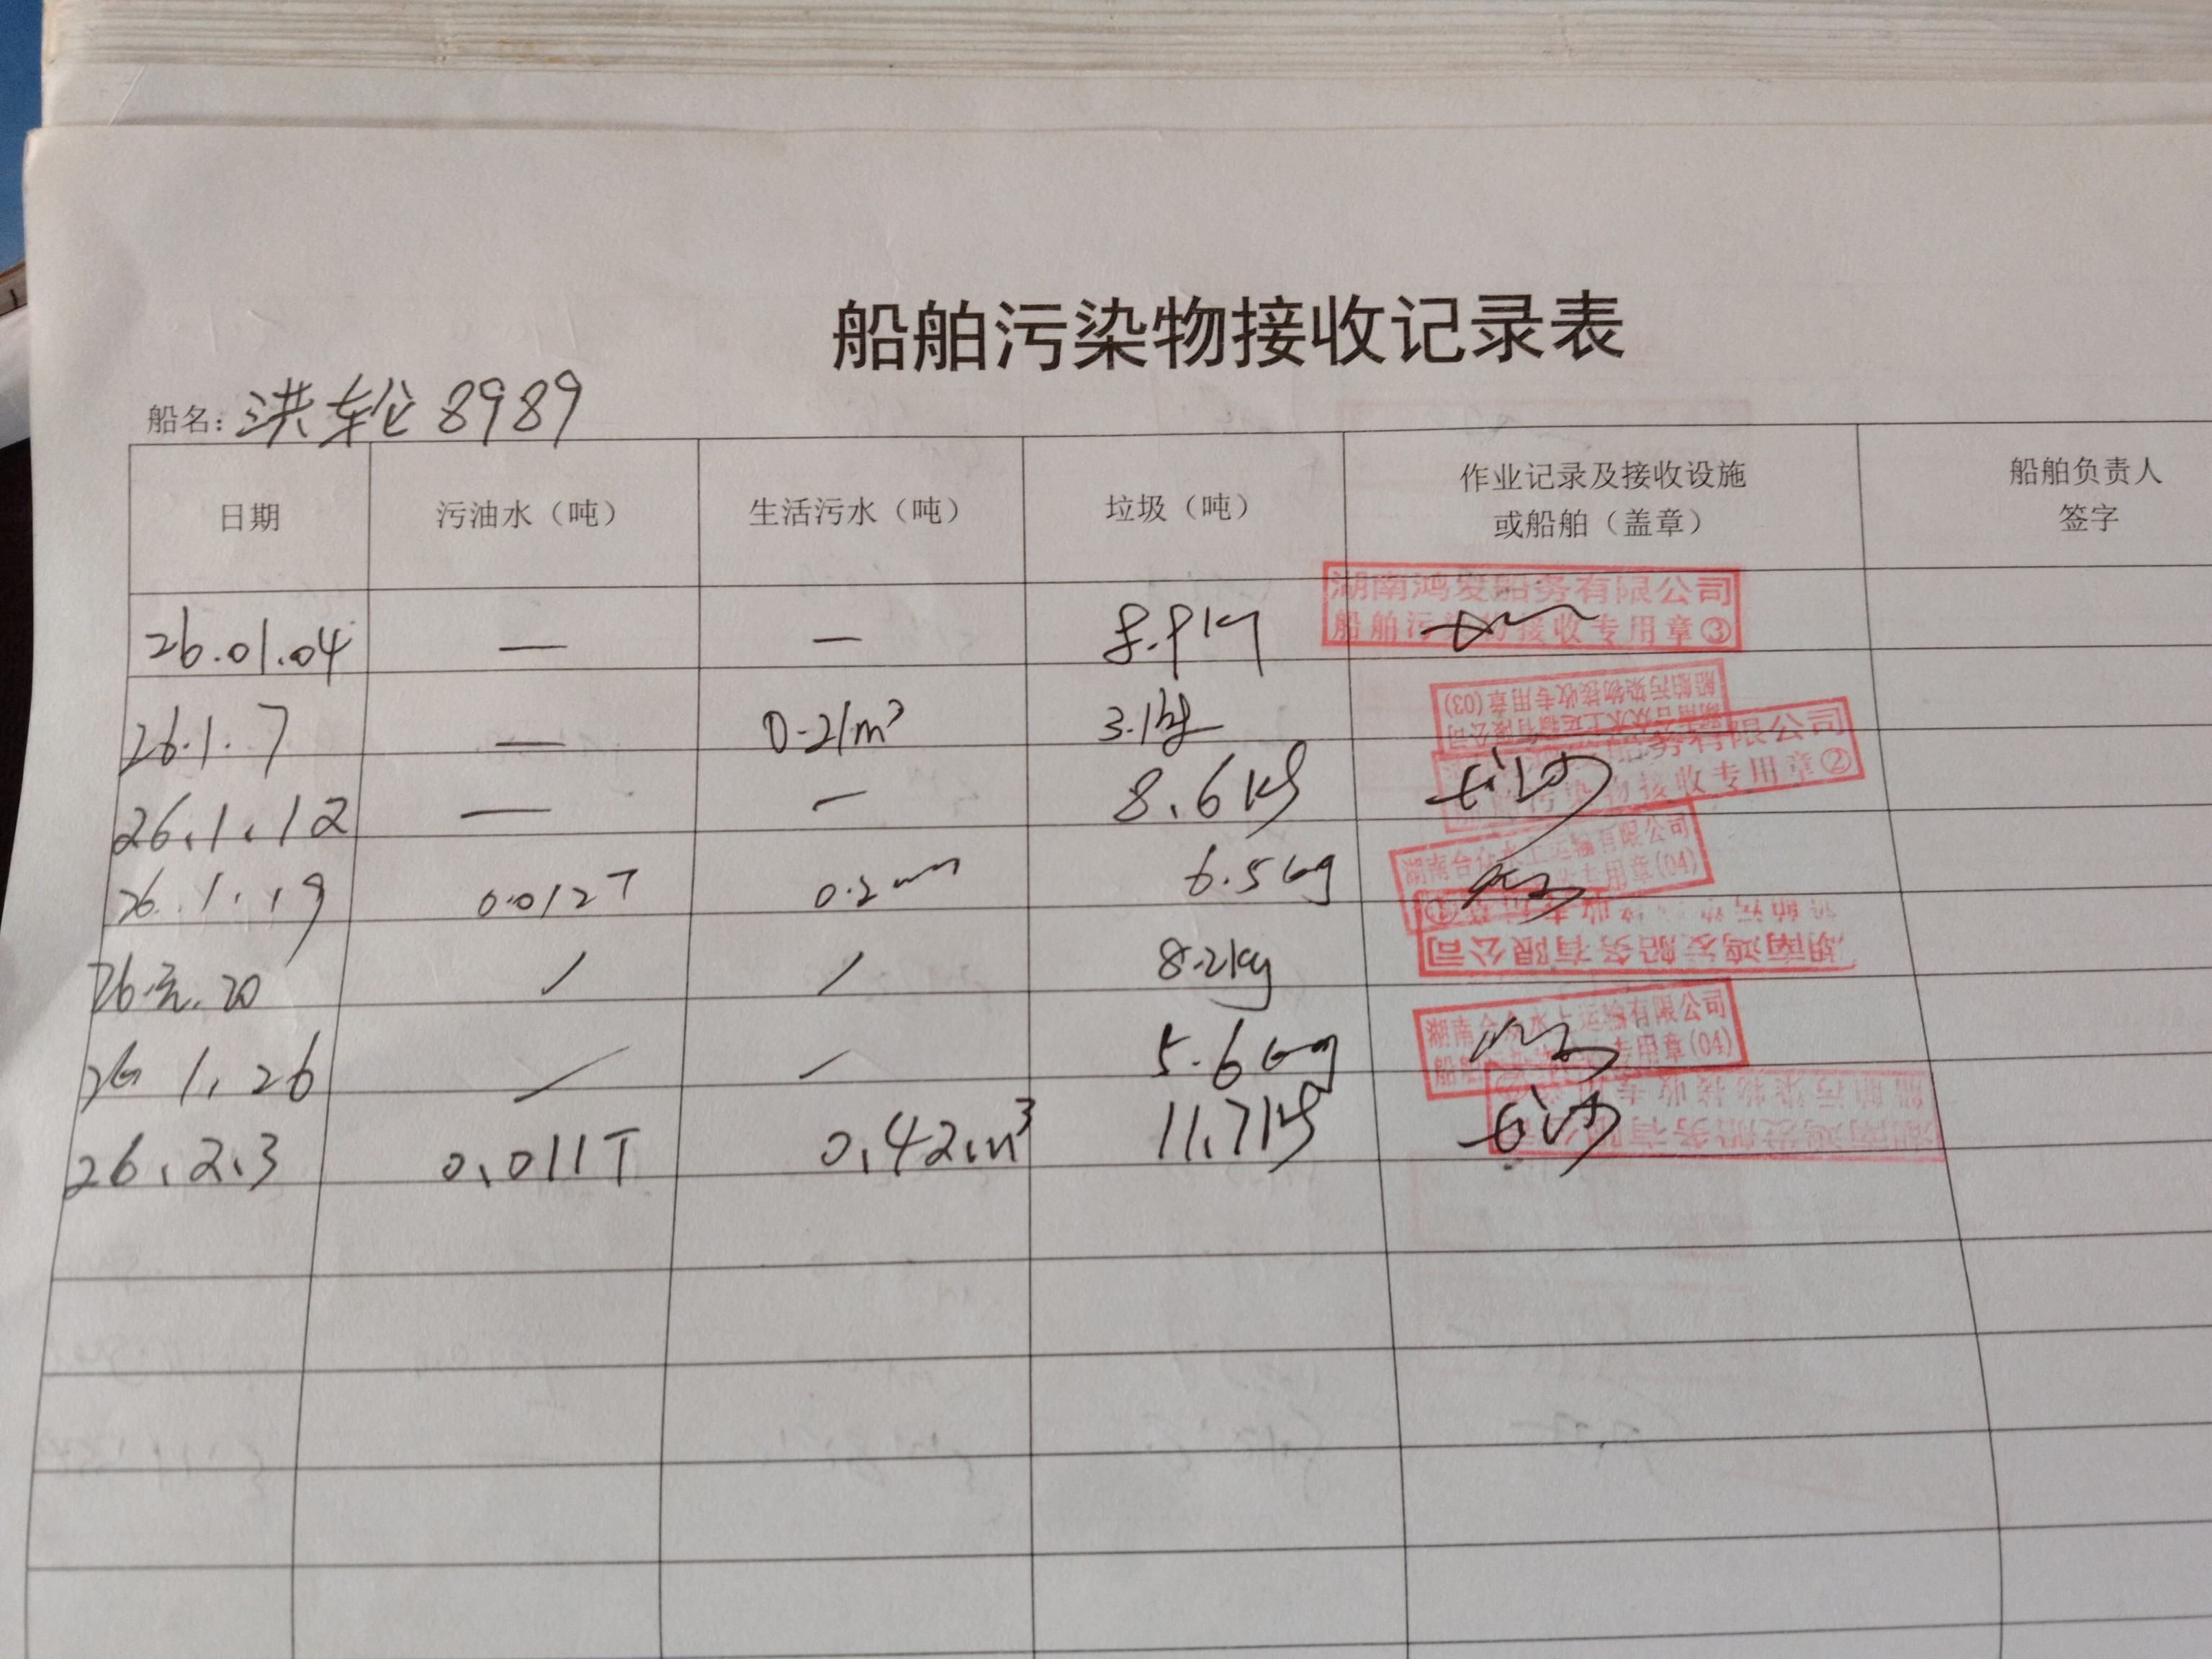 船舶污染物接收记录表
船名：洪轮8989
日期 污油水（吨） 生活污水（吨） 垃圾（吨） 作业记录及接收设施或船舶（盖章） 船舶负责人签字
26.01.04 — — 8.9kg
湖南鸿发船务有限公司
船舶污染物接收专用章③
26.1.7 — 0.21m³ 3.1kg
湖南合众水上运输有限公司
船舶污染物接收专用章(03)
26.1.12 — — 8.6kg 长沙
船务有限公司
船舶污染物接收专用章②
26.1.19 0.012T 0.2 6.5kg
湖南合众水上运输有限公司
专用章(04)
26.元.20 / / 8.2kg
湖南鸿发船务有限公司
26 1.26 / / 5.6kg
湖南合众水上运输有限公司
专用章(04)
26.2.3 0.011T 0.42m³ 11.7kg 长沙
湖南鸿发船务有限公司
船舶污染物接收专